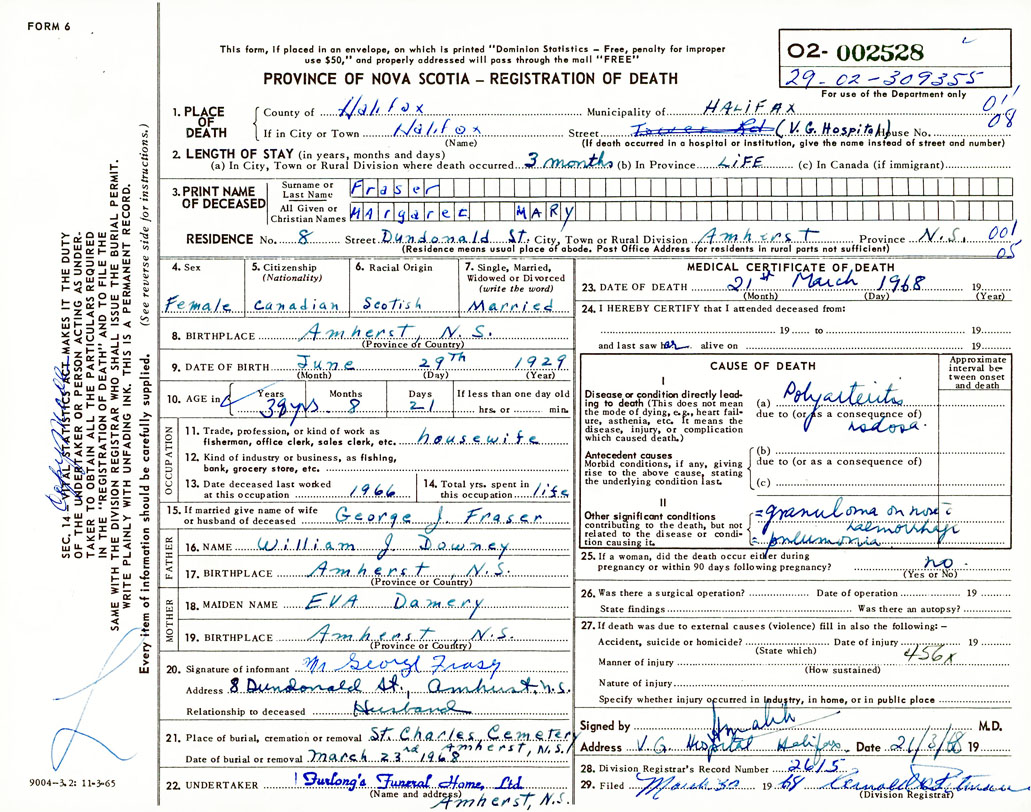 FORM 6
This form, if placed in an envelope, on which is printed "Dominion Statistics – Free, penalty for improper
use $50," and properly addressed will pass through the mail "FREE"
PROVINCE OF NOVA SCOTIA – REGISTRATION OF DEATH
02- 002528
29-02-309355
For use of the Department only
SEC. 14 – VITAL STATISTICS ACT MAKES IT THE DUTY
OF THE UNDERTAKER OR PERSON ACTING AS UNDER-
TAKER TO OBTAIN ALL THE PARTICULARS REQUIRED
IN THE "REGISTRATION OF DEATH" AND TO FILE THE
SAME WITH THE DIVISION REGISTRAR WHO SHALL ISSUE THE BURIAL PERMIT.
WRITE PLAINLY WITH UNFADING INK. THIS IS A PERMANENT RECORD.
Every item of information should be carefully supplied. (See reverse side for instructions.)
9004-3.2: 11-3-65
1. PLACE OF DEATH
County of Halifax Municipality of HALIFAX 01
If in City or Town Halifax Street Tower Rd (V.G. Hospital) House No. 08
(Name) (If death occurred in a hospital or institution, give the name instead of street and number)
2. LENGTH OF STAY (in years, months and days)
(a) In City, Town or Rural Division where death occurred 3 months (b) In Province LIFE (c) In Canada (if immigrant)
3. PRINT NAME OF DECEASED
Surname or Last Name Fraser
All Given or Christian Names Margaret MARY
RESIDENCE No. 8 Street Dundonald St. City, Town or Rural Division Amherst Province N.S. 001
(Residence means usual place of abode. Post Office Address for residents in rural parts not sufficient) 05
4. Sex Female
5. Citizenship (Nationality) Canadian
6. Racial Origin Scotish
7. Single, Married, Widowed or Divorced (write the word) Married
8. BIRTHPLACE Amherst, N.S.
(Province or Country)
9. DATE OF BIRTH June 29th 1929
(Month) (Day) (Year)
10. AGE in Years 38 yrs Months 8 Days 21 If less than one day old hrs. or min.
OCCUPATION
11. Trade, profession, or kind of work as
fisherman, office clerk, sales clerk, etc. housewife
12. Kind of industry or business, as fishing,
bank, grocery store, etc.
13. Date deceased last worked
at this occupation 1966
14. Total yrs. spent in
this occupation life
15. If married give name of wife
or husband of deceased George J. Fraser
FATHER
16. NAME William J. Downey
17. BIRTHPLACE Amherst, N.S.
(Province or Country)
MOTHER
18. MAIDEN NAME EVA Damery
19. BIRTHPLACE Amherst, N.S.
(Province or Country)
20. Signature of informant Mr George Frasy
Address 8 Dundonald St., Amhurst, N.S.
Relationship to deceased Husband
21. Place of burial, cremation or removal St. Charles Cemetery
Amherst, N.S.
Date of burial or removal March 23rd 1968
22. UNDERTAKER Furlong's Funeral Home, Ltd
(Name and address) Amherst, N.S.
MEDICAL CERTIFICATE OF DEATH
23. DATE OF DEATH 21st March 1968 19
(Month) (Day) (Year)
24. I HEREBY CERTIFY that I attended deceased from:
19 to 19
and last saw her alive on 19
CAUSE OF DEATH
Approximate interval between onset and death
I
Disease or condition directly leading to death (This does not mean the mode of dying, e.g., heart failure, asthenia, etc. It means the disease, injury, or complication which caused death.)
(a) Polyarteritis
due to (or as a consequence of)
nodosa.
Antecedent causes
Morbid conditions, if any, giving rise to the above cause, stating the underlying condition last.
(b)
due to (or as a consequence of)
(c)
II
Other significant conditions
contributing to the death, but not related to the disease or condition causing it.
=granuloma on nose c̄
haemorrhage
= pneumonia.
25. If a woman, did the death occur either during
pregnancy or within 90 days following pregnancy? no.
(Yes or No)
26. Was there a surgical operation? Date of operation 19
State findings Was there an autopsy?
27. If death was due to external causes (violence) fill in also the following: –
Accident, suicide or homicide? Date of injury 19
(State which) 456x
Manner of injury
(How sustained)
Nature of injury
Specify whether injury occurred in industry, in home, or in public place
Signed by M.D.
Address V.G. Hospital Halifax Date 21/3/68 19
28. Division Registrar's Record Number 2615
29. Filed March 30 1968
(Division Registrar)